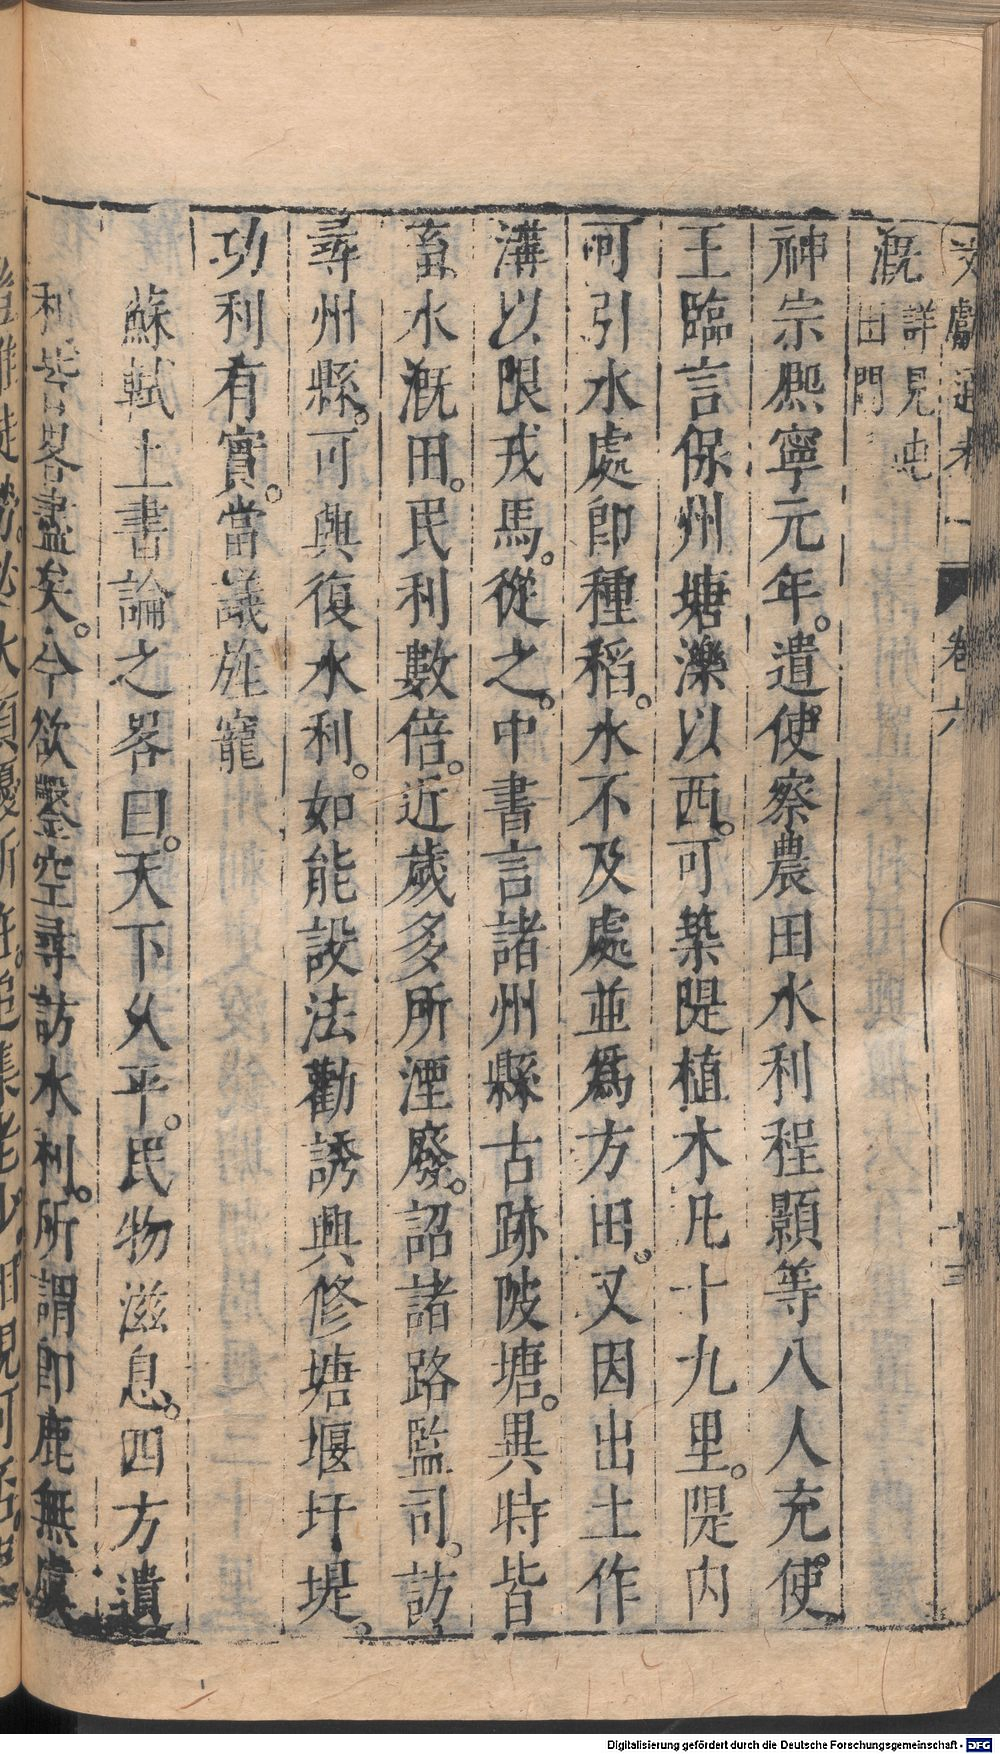 文獻通考 卷六 十三
溉詳見屯田門
神宗熙寧元年。遣使察農田水利程顥等八人充使
王臨言保州塘濼以西。可築隄植木凡十九里。隄内
可引水處即種稻。水不及處並爲方田。又因出土作
溝以限戎馬。從之。中書言諸州縣古跡陂塘。異時皆
畜水溉田。民利數倍。近歲多所湮廢。詔諸路監司。訪
尋州縣。可興復水利。如能設法勸誘興修塘堰圩堤。
功利有實。當議旌寵
蘇軾上書論之畧曰。天下乆平。民物滋息。四方遺
利皆畧盡矣。今欲鑿空尋訪水利。所謂即鹿無虞
Digitalisierung gefördert durch die Deutsche Forschungsgemeinschaft - DFG